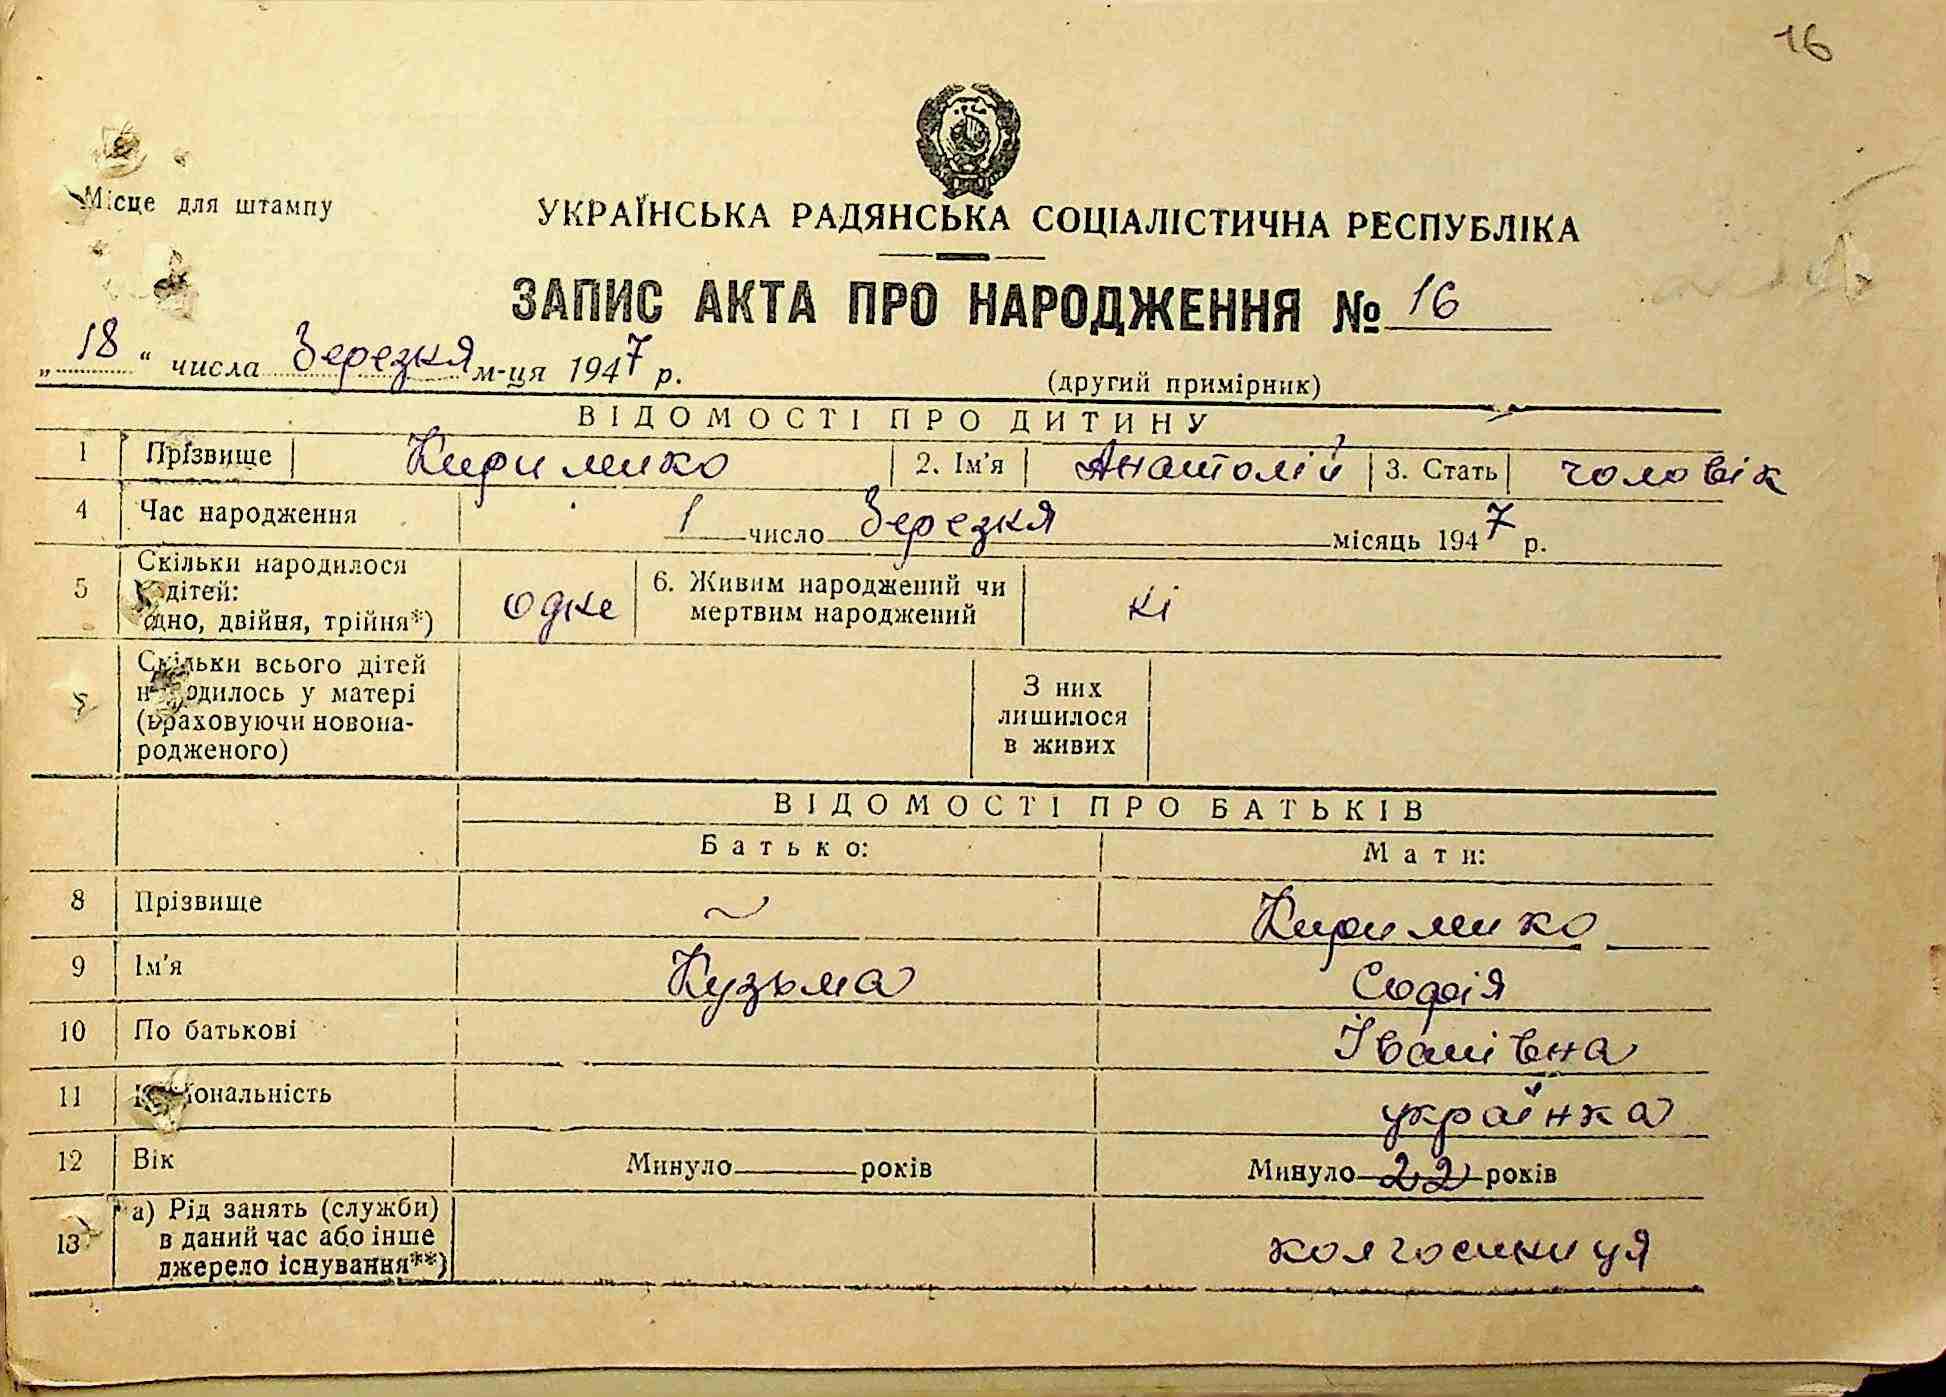 16
Місце для штампу
УКРАЇНСЬКА РАДЯНСЬКА СОЦІАЛІСТИЧНА РЕСПУБЛІКА
ЗАПИС АКТА ПРО НАРОДЖЕННЯ № 16
„18“ числа Березня м-ця 1947 р.
(другий примірник)
ВІДОМОСТІ ПРО ДИТИНУ
1 Прізвище Кириленко 2. Ім'я Анатолій 3. Стать чоловік
4 Час народження 1 число Березня місяць 1947 р.
5 Скільки народилося дітей: одно, двійня, трійня*) одне 6. Живим народжений чи мертвим народжений ні
Скільки всього дітей народилось у матері (враховуючи новонародженого) З них лишилося в живих
ВІДОМОСТІ ПРО БАТЬКІВ
Батько: Мати:
8 Прізвище — Кириленко
9 Ім'я Кузьма Софія
10 По батькові Іванівна
11 Національність українка
12 Вік Минуло років Минуло 22 років
13 а) Рід занять (служби) в даний час або інше джерело існування**) колгоспниця